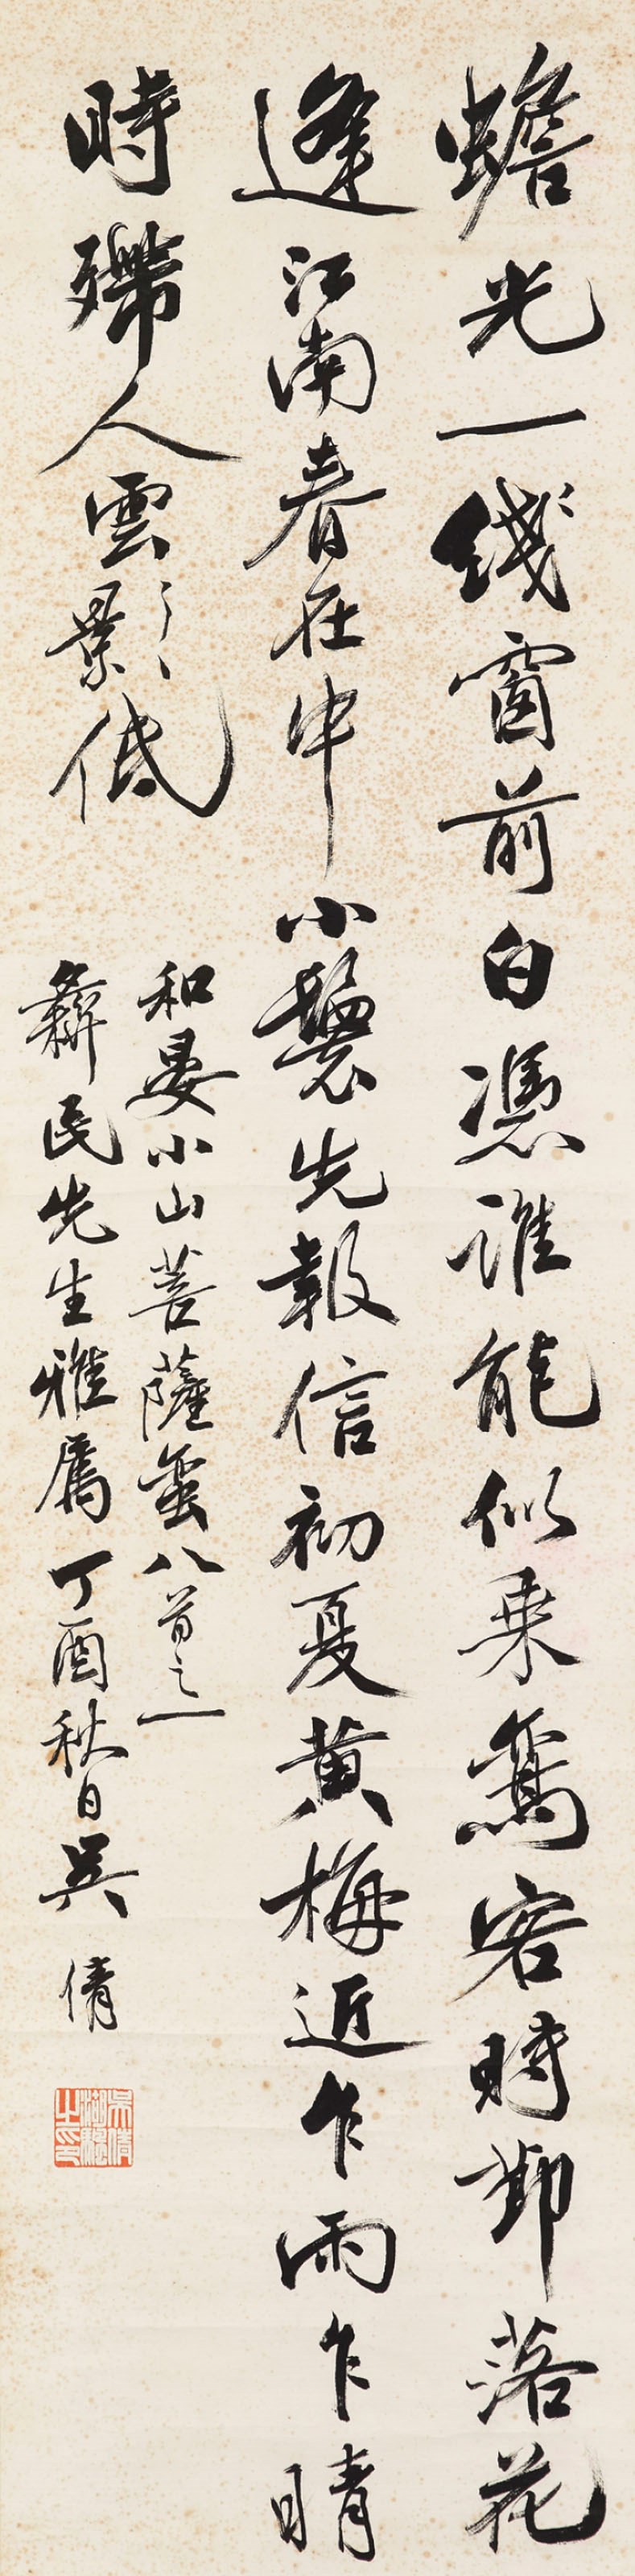 蟾光一綫窗前白憑誰能似乘鸞客時節落花
逢江南春在中小鬟先報信初夏黃梅近乍雨乍晴
時殢人雲影低
和晏小山菩薩蠻八首之一
彝民先生雅屬丁酉秋日吳倩
吳倩湖颿之印